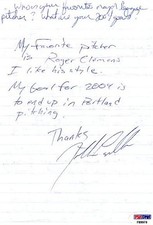 Who is your favorite major league
pitcher? What are your 2004 goals?
My favorite pitcher
is Roger Clemens
I like his style.
My Goal for 2004 is
to end up in Portland
pitching.
Thanks
PSA/DNA